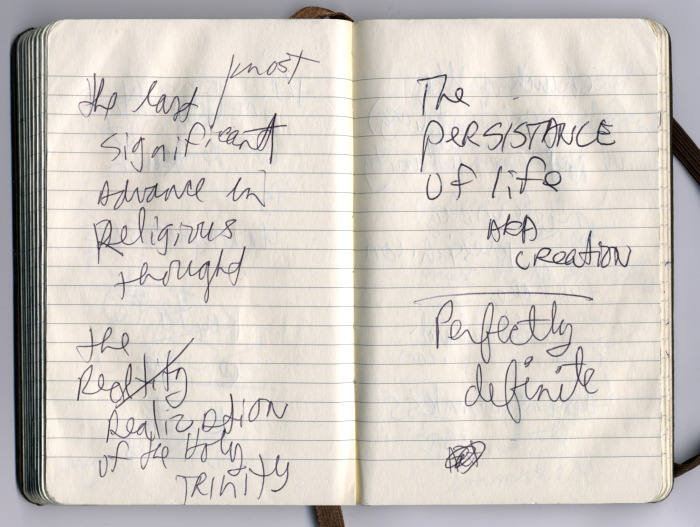 the last / most
significant
Advance in
Religious
thought
the
Reality
Realization
of the Holy
TRINITY
The
PERSISTANCE
of life
AKA
CREATION
Perfectly
definite